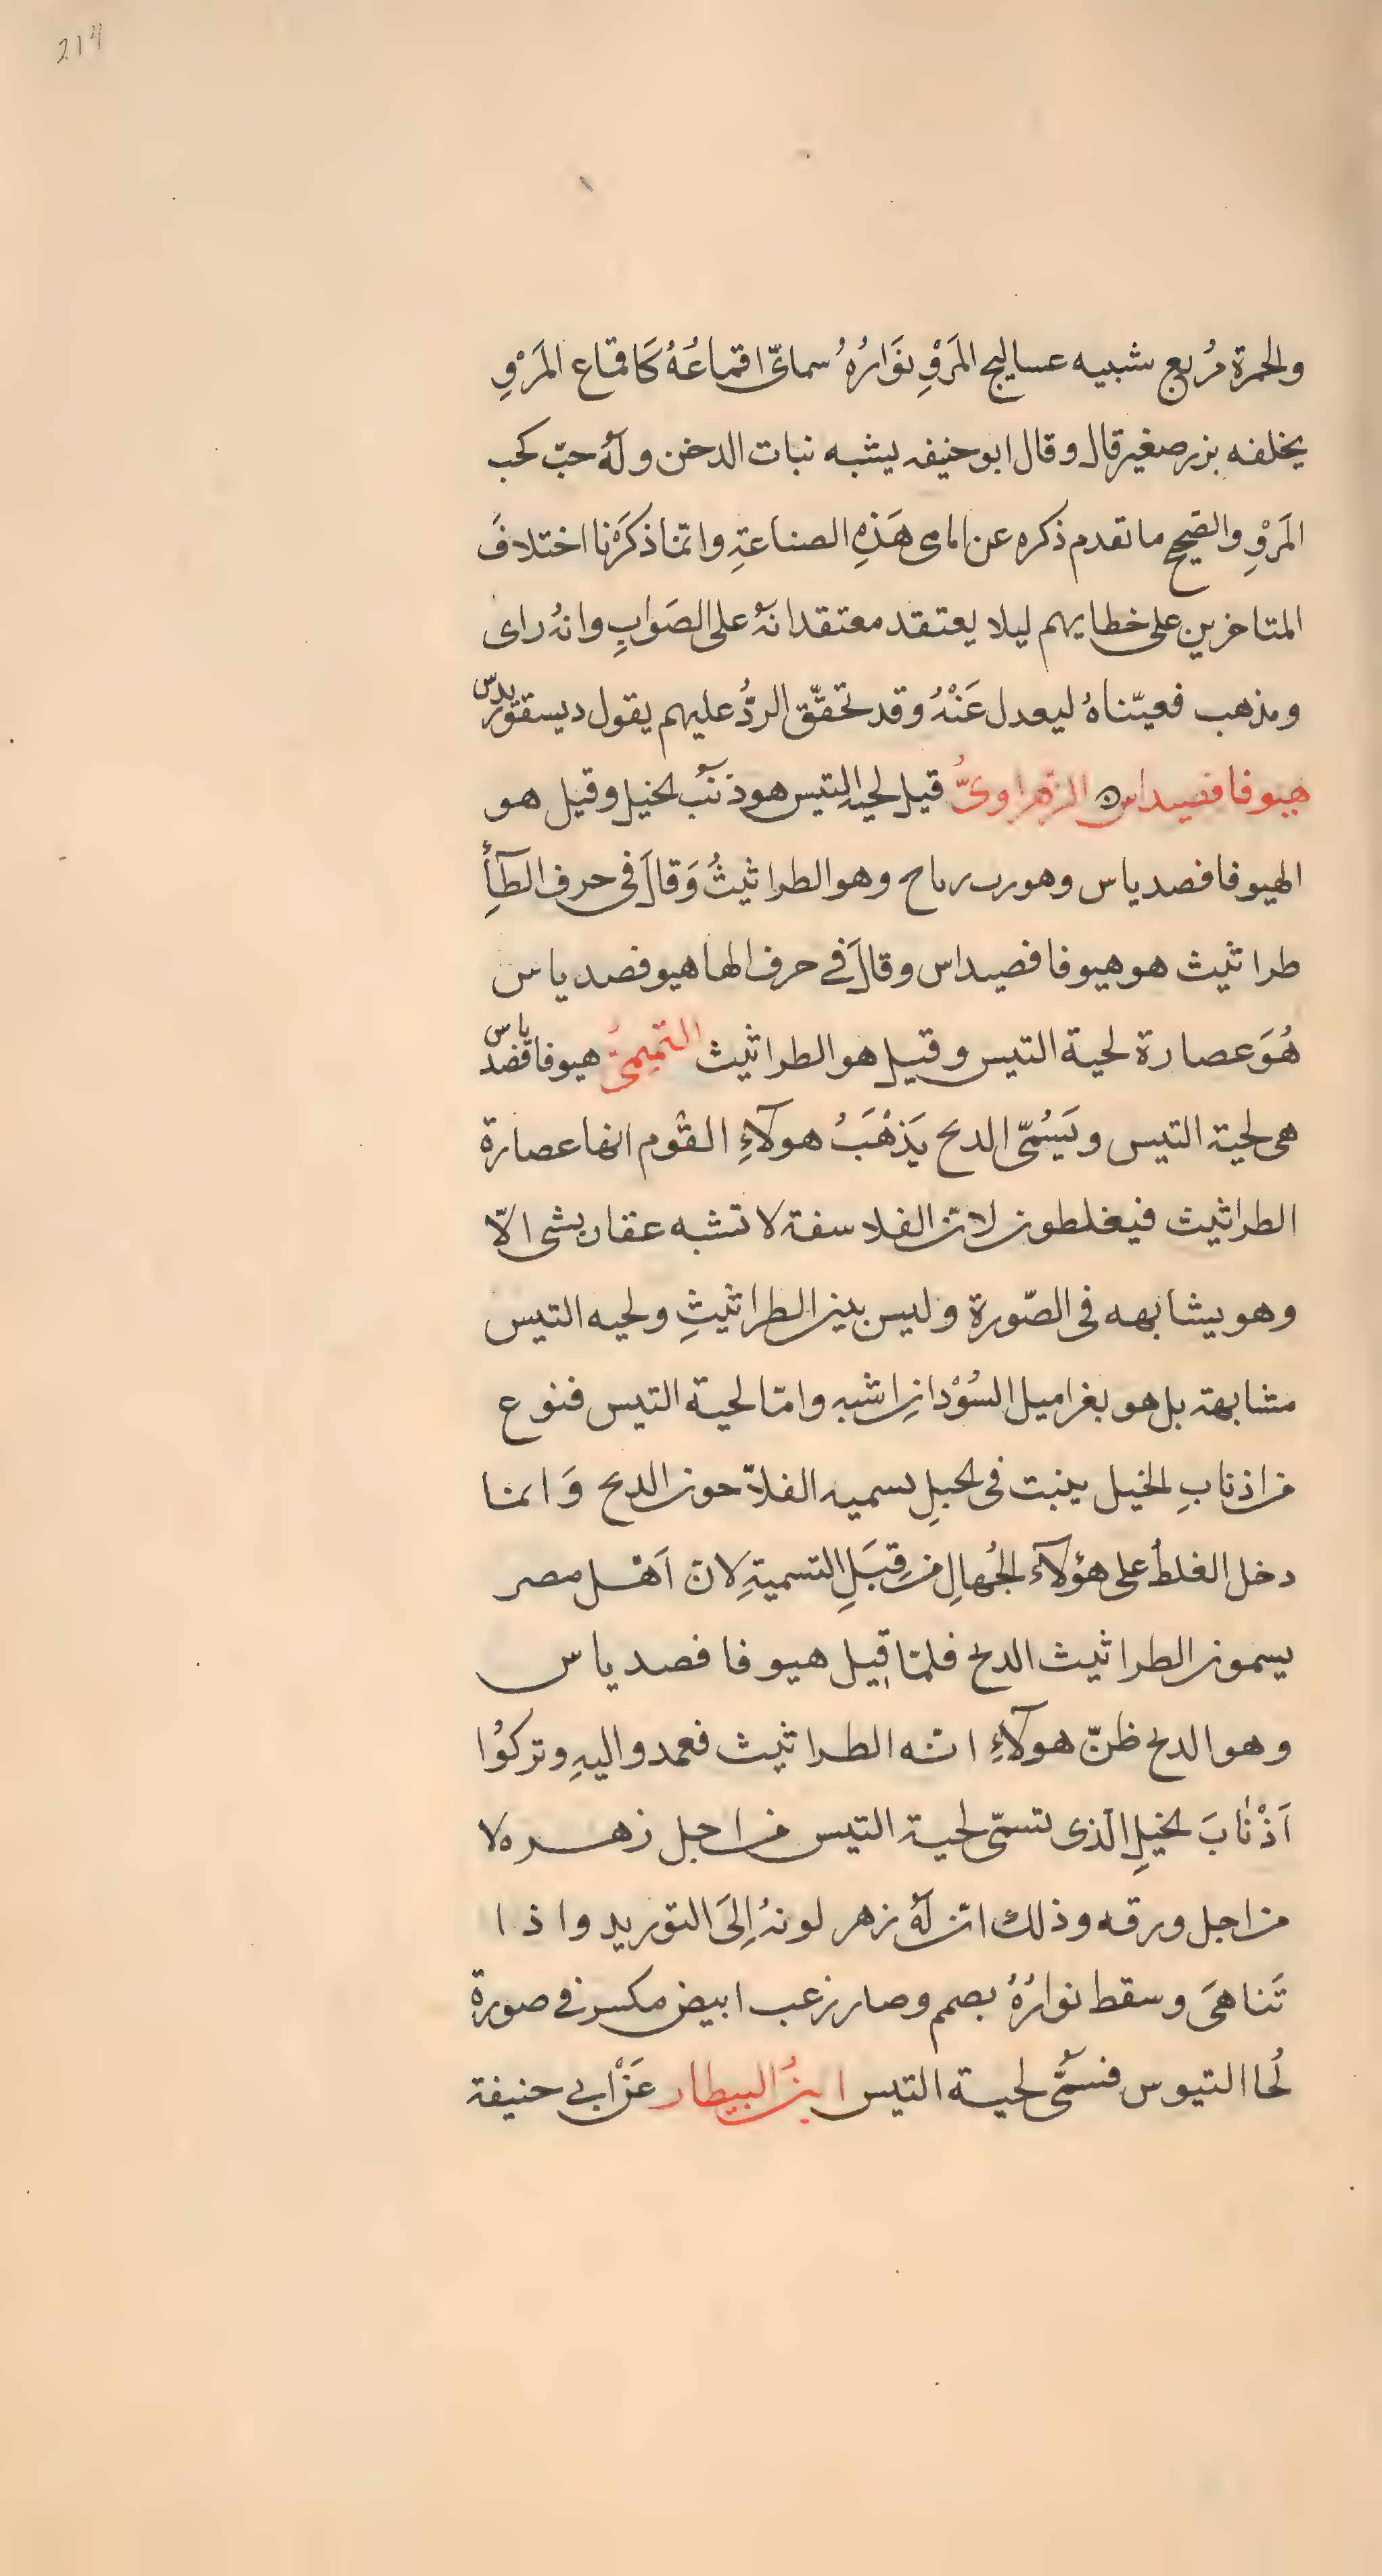 214
والحمرة مُربع شبيه عساليج المَرْوِ نوَّارُهُ سمائىّ اقماعُهُ كَاقماع المَرْوِ
يخلفه بزر صغير قال وقال ابو حنيفه يشبه نبات الدخن ولهُ حبّ كحب
المَرْوِ والصّحيح ما تقدم ذكره عن امامى هَذِهِ الصناعةِ وانما ذكَرْنا اختلافَ
المتاخرين على خطايهم ليلا يعتقد معتقد انهُ على الصَوابِ وانهُ راى
ومذهب فعيّناهُ ليعدل عَنْهُ وقد تحقّق الردُّ عليهم يقول ديسقوريدس
هيوفافصيداس الزهراوىُّ قيل لحيه التيس هو ذَنَب الخيل وقيل هو
الهيوفافصدياس وهو رب رباح وهو الطراثيثُ وَقالَ فى حرف الطآءِ
طراثيث هو هيوفافصيداس وقالَ فى حرف الها هيوفصدياس
هُوَ عصارة لحية التيس وقيل هو الطراثيث التميمىُّ هيوفاقصدياس
هى لحية التيس ويَسُمّى الدبح يَذْهَبُ هولآءِ القوم انها عصارة
الطراثيث فيغلطون لان الفلاسفة لا تشبه عقار بشى الّا
وهو يشابهه فى الصّورة وليس بين الطراثيثِ ولحيه التيس
مشابهة بل هو بغراميل السُوْدانِ اشبه وامّا لحية التيس فنوع
من اذنابِ الخيل ينبت فى الجبلِ يسميه الفلاّحون الدبح وَانما
دخل الغلطُ على هؤلآء الجُهالِ من قِبَلِ التسميةِ لانّ اَهْل مصر
يسمون الطراثيث الدبح فلمّا قيل هيوفافصدياس
وهو الدبح ظنّ هولآءِ انّه الطراثيث فعمدوا اليهِ وتركوُا
اَذْنابَ الخيلِ الّذى تسمّى لحية التيس من اجل زهره لا
من اجل ورقه وذلك انّ لهُ زهر لونهُ اِلَى التوريد واذا
تَناهىَ وسقط نوارُهُ بصم وصار زغب ابيض مكسر فى صورة
لُحا التيوس فسُمّى لحيـة التيس ابنُ البيطار عَنْ ابى حنيفة